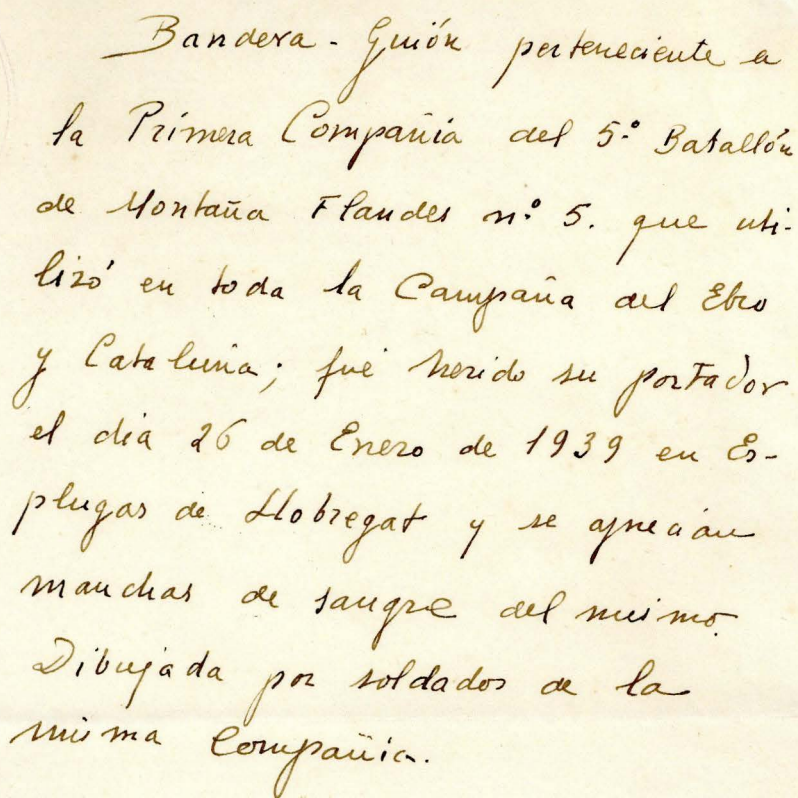 Bandera - Guión perteneciente a
la Primera Compañia del 5º Batallón
de Montaña Flandes nº 5. que uti-
lizó en toda la Campaña del Ebro
y Cataluña; fué herido su portador
el dia 26 de Enero de 1939 en Es-
plugas de Llobregat y se aprecian
manchas de sangre del mismo.
Dibujada por soldados de la
misma Compañia.